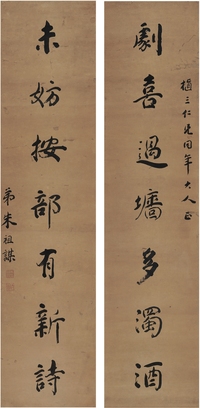 三仁兄同年大人正
劇喜過墻多濁酒
未妨按部有新詩
弟朱祖謀